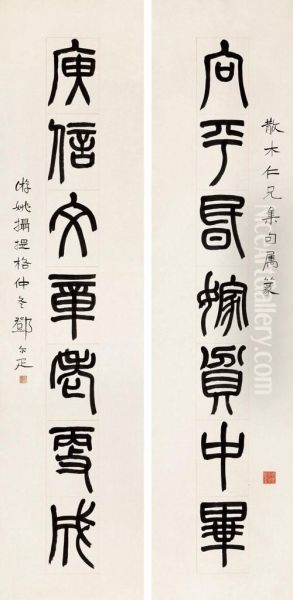 散木仁兄集句属篆
向平昏嫁貧中畢
庾信文章老更成
游姚攝提格仲冬鄧尔疋